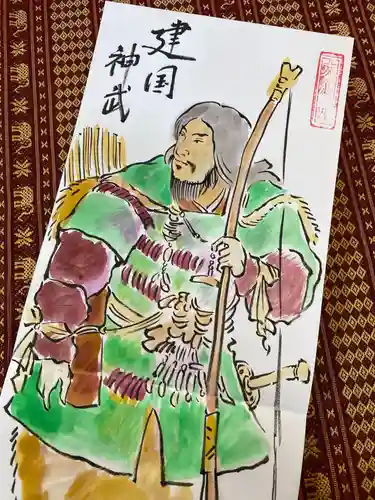 建国
神武